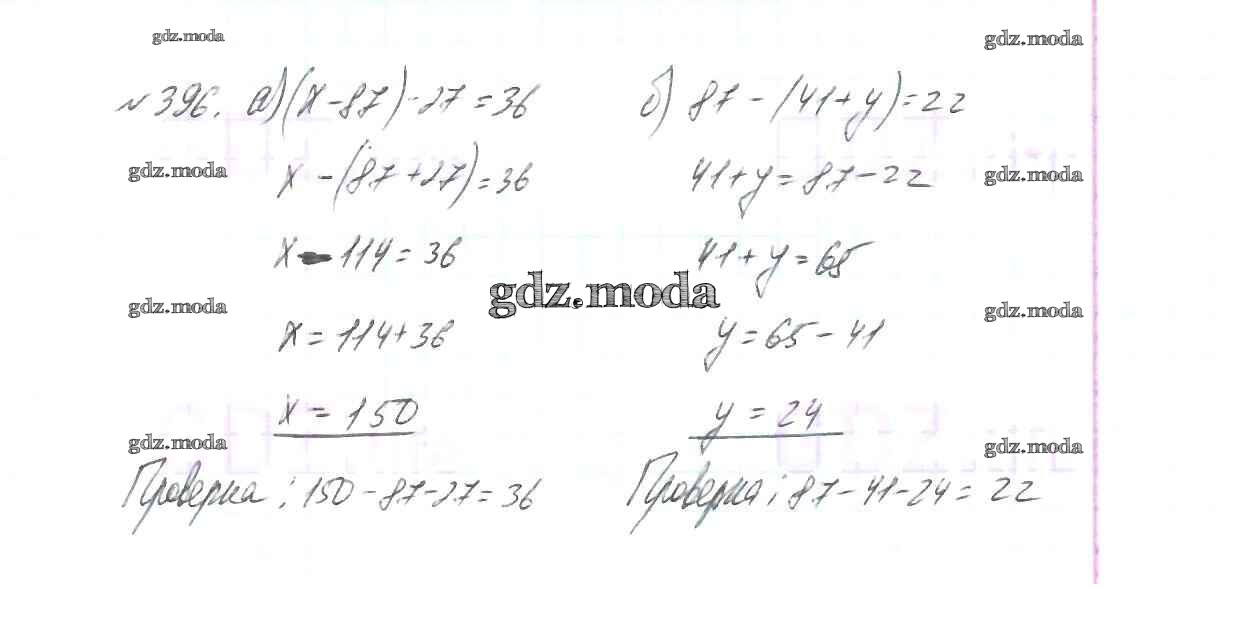 gdz.moda
gdz.moda
№ 396. а) (x - 87) - 27 = 36
б) 87 - (41 + y) = 22
gdz.moda
x - (87 + 27) = 36
41 + y = 87 - 22
gdz.moda
x - 114 = 36
41 + y = 65
gdz.moda
gdz.moda
x = 114 + 36
y = 65 - 41
gdz.moda
x = 150
y = 24
gdz.moda
gdz.moda
Проверка: 150 - 87 - 27 = 36
Проверка: 87 - 41 - 24 = 22